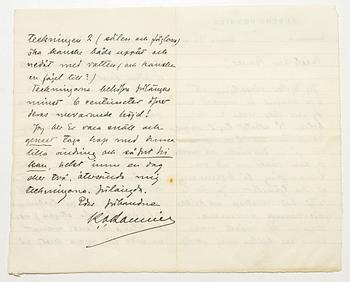 teckningen 2 (sälen och fåglarna)
ska kanske både uppåt och
nedåt med vatten (och kanske
en fågel till?)
Teckningarna behöfva förlängas
minst 6 centimeter öfver
deras nuvarande höjd!
Jag ber Er vara snäll och
genast taga hop med denna
lilla ändring och så fort Ni
kan, helst inom en dag
eller två, återsända mig
teckningarna, förlängda.
Eder förbundne